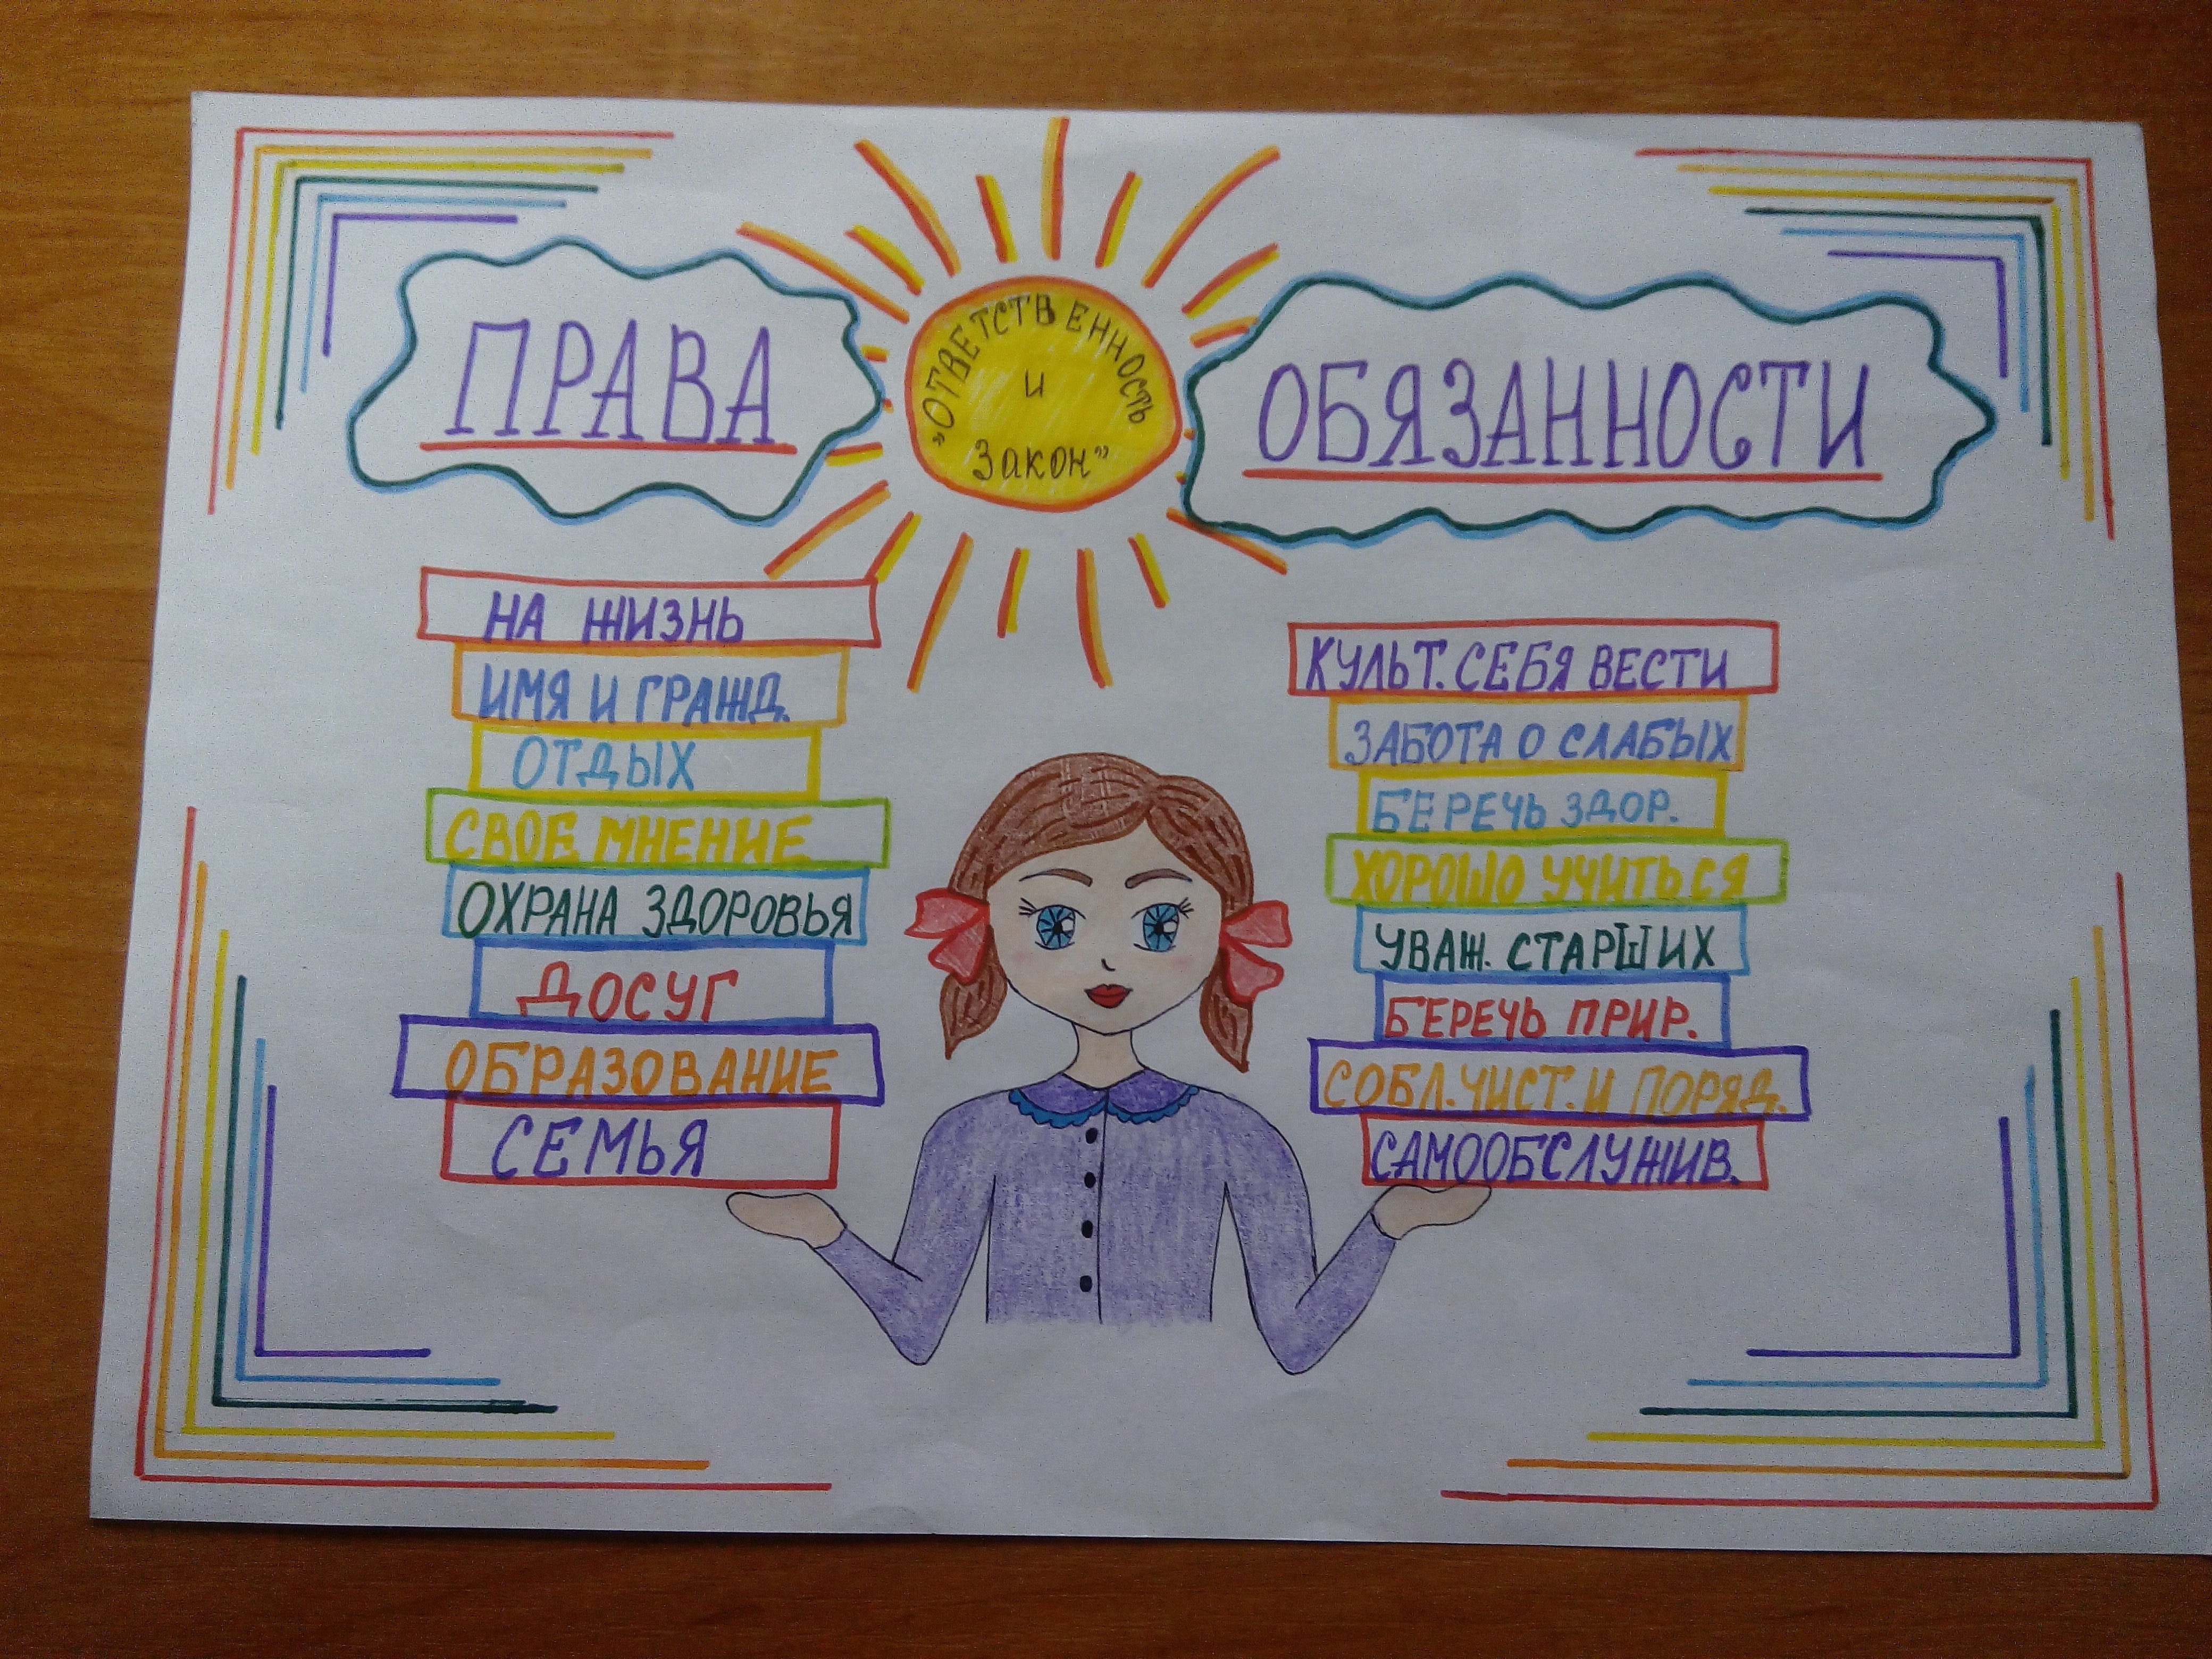 ПРАВА
„ОТВЕТСТВЕННОСТЬ
и
Закон”
ОБЯЗАННОСТИ
НА ЖИЗНЬ
ИМЯ И ГРАЖД.
ОТДЫХ
СВОЕ МНЕНИЕ
ОХРАНА ЗДОРОВЬЯ
ДОСУГ
ОБРАЗОВАНИЕ
СЕМЬЯ
КУЛЬТ. СЕБЯ ВЕСТИ
ЗАБОТА О СЛАБЫХ
БЕРЕЧЬ ЗДОР.
ХОРОШО УЧИТЬСЯ
УВАЖ. СТАРШИХ
БЕРЕЧЬ ПРИР.
СОБЛ. ЧИСТ. И ПОРЯД.
САМООБСЛУЖИВ.